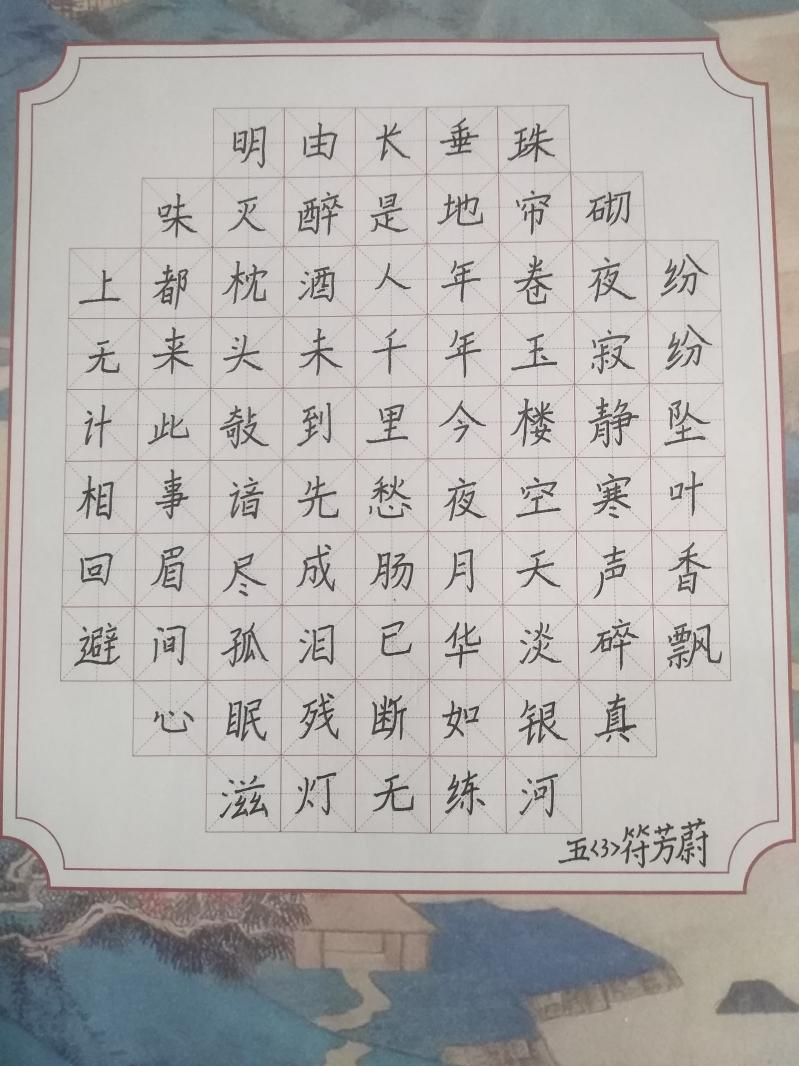 纷纷坠叶香飘
砌夜寂静寒声碎真
珠帘卷玉楼空天淡银河
垂地年年今夜月华如练
长是人千里愁肠已断无
由醉酒未到先成泪残灯
明灭枕头敧谙尽孤眠滋
味都来此事眉间心
上无计相回避
五<3>符芳蔚